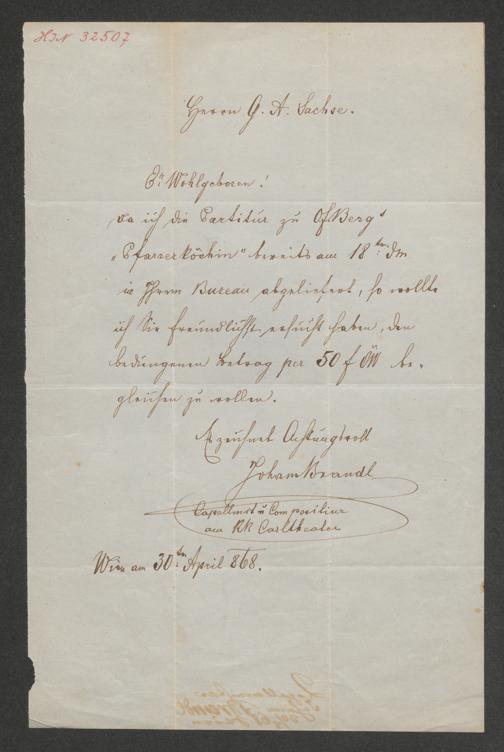 HIN 32507
Herrn G. A. Sachse.
Er. Wohlgeboren!
da ich die Partitur zu O.F. Berg's
„Pfarrerköchin" bereits am 18ten: dM
in Ihrem Bureau abgeliefert, so wollte
ich Sie freundlichst ersucht haben, den
bedungenen Betrag per 50 f ÖW be-
gleichen zu wollen.
Es zeichnet Achtungsvoll
Johann Brandl
Capellmst u Compositeur
am KK Carltheater
Wien am 30ten: April 868.